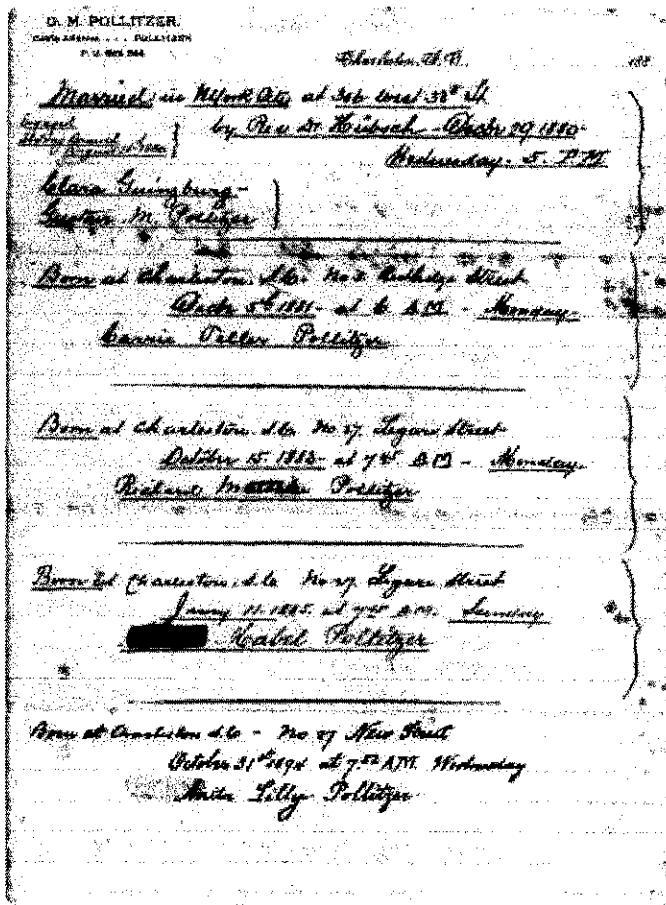 G. M. POLLITZER.
P. O. BOX
Charleston, S. C. 188
Married in N York City at 306 West 38th St
by Rev Dr Hübsch - Decbr 29 1880-
Wednesday - 5 P.M
Engaged
Clara Guinzburg -
Gustave M. Pollitzer
Born at Charleston S Ca. No 5 Rutledge Street
Decbr 5th 1881 - at 6 A M - Monday-
Carrie Teller Pollitzer
Born at Charleston S Ca No 27 Legare Street
October 15 1883 - at 7 A M - Monday.
Richard Pollitzer
Born at Charleston, S Ca No 27 Legare Street
Jany 11. 1885. at A.M. Sunday
Mabel Pollitzer
Born at Charleston S Ca - No 27 New Street
October 31st 1894 at 7 AM. Wednesday
Anita Lilly Pollitzer